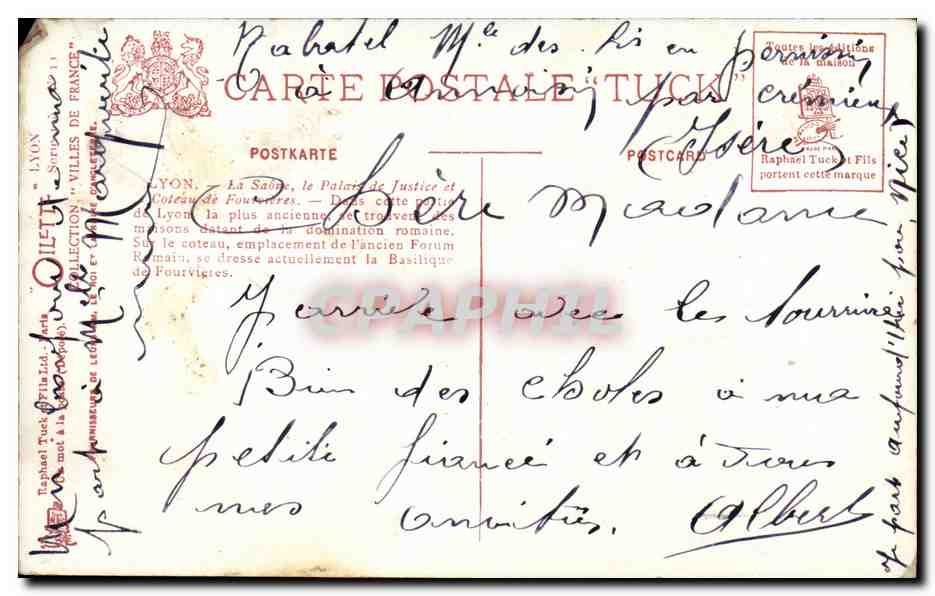 Mle des Lis en permission
à par Crémieu
(Isère)
CARTE POSTALE "TUCK"
Toutes les éditions
de la maison
Raphael Tuck et Fils
portent cette marque
POSTKARTE
POSTCARD
LYON. — La Saône, le Palais de Justice et
Coteau de Fourvières. — Dans cette partie
de Lyon, la plus ancienne, se trouvent des
maisons datant de la domination romaine.
Sur le coteau, emplacement de l'ancien Forum
Romain, se dresse actuellement la Basilique
de Fourvières.
Chère Madame
J'arrive avec les
Bien des choses à ma
petite fiancée et à vous
mes amitiés. Albert
Je pars aujourd'hui pour Nice
Mon bonjour à
à Melle Marguerite
"OILETTE" LYON
COLLECTION "VILLES DE FRANCE"
Raphael Tuck et Fils Ltd. Paris
FOURNISSEURS DE LEURS M. LE ROI ET LA REINE D'ANGLETERRE.
CPAPHIL